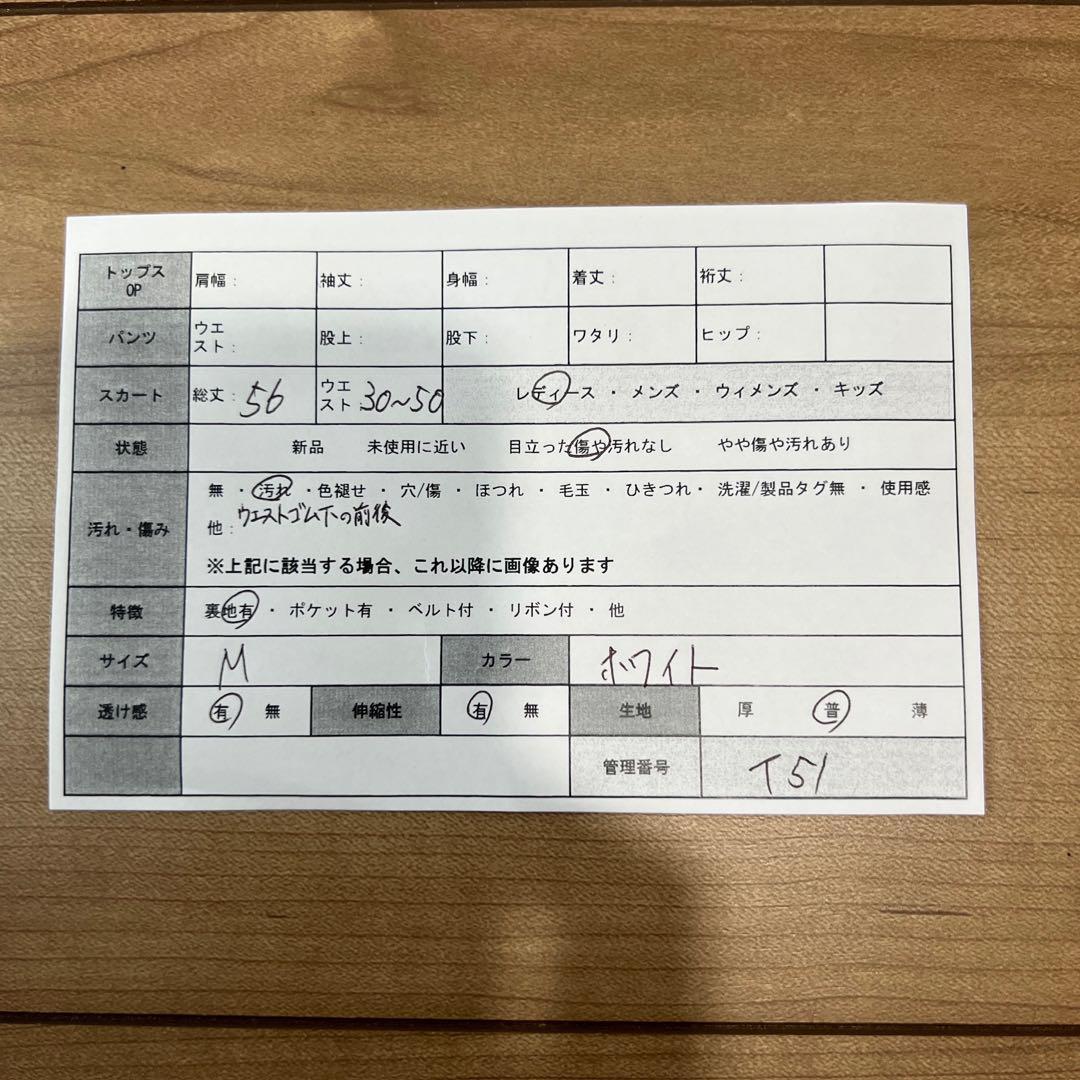 トップス OP 肩幅: 袖丈: 身幅: 着丈: 裄丈:
パンツ ウエスト: 股上: 股下: ワタリ: ヒップ:
スカート 総丈: 56 ウエスト 30~50 レディース ・ メンズ ・ ウィメンズ ・ キッズ
状態 新品 未使用に近い 目立った傷や汚れなし やや傷や汚れあり
汚れ・傷み 無 ・ 汚れ ・色褪せ ・ 穴/傷 ・ ほつれ ・ 毛玉 ・ ひきつれ・ 洗濯/製品タグ無 ・ 使用感
他: ウエストゴム下の前後
※上記に該当する場合、これ以降に画像あります
特徴 裏地有 ・ ポケット有 ・ ベルト付 ・ リボン付 ・ 他
サイズ M カラー ホワイト
透け感 有 無 伸縮性 有 無 生地 厚 普 薄
管理番号 T51